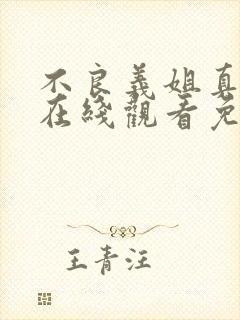 不良義姐真
在綫觀看免
王青汪